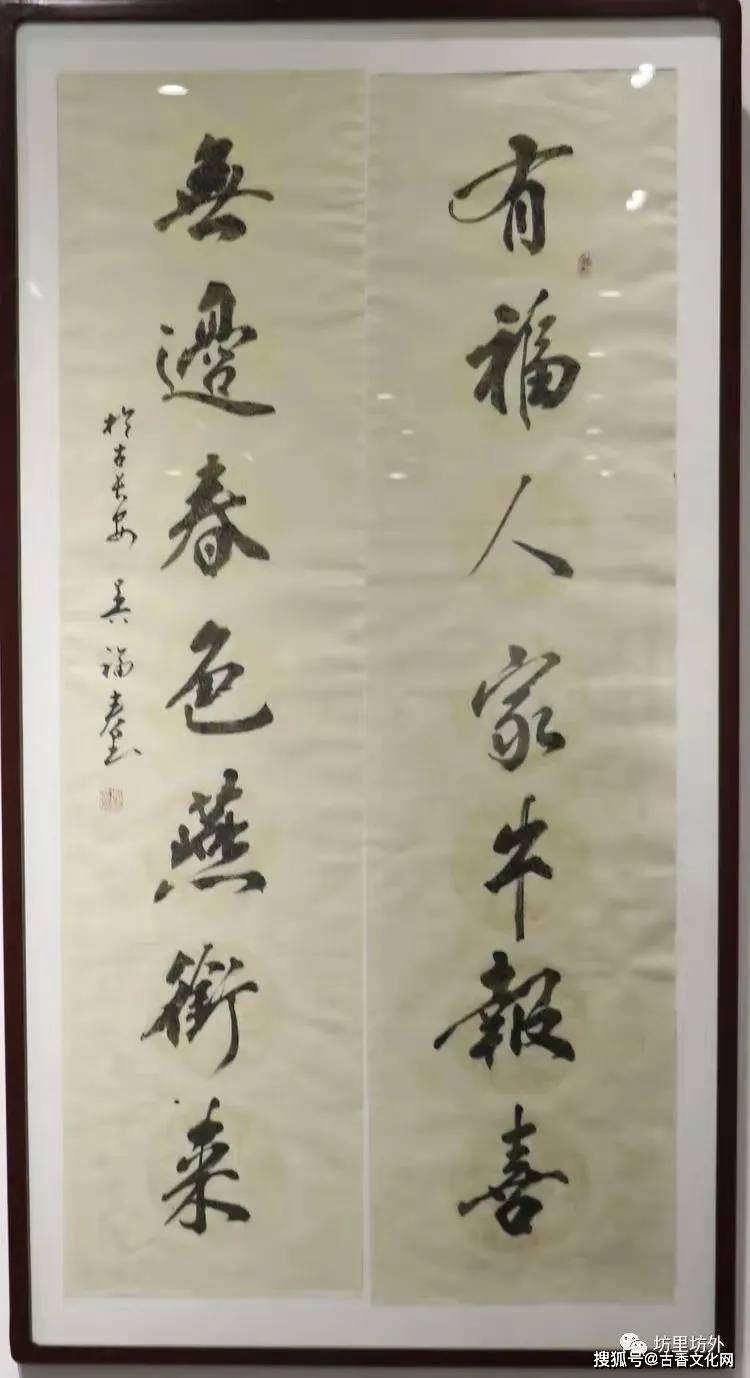 有福人家牛報喜
無邊春色燕銜来
於古長安 吴福春書
坊里坊外
搜狐号@古香文化网